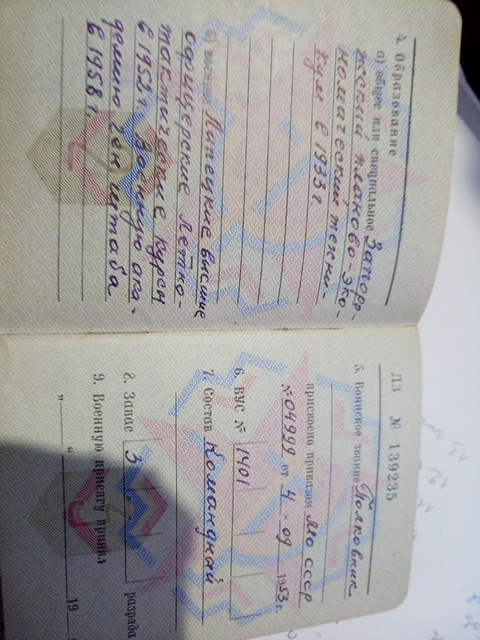 4. Образование
а) общее или специальное Запорож-
ский планово-эко-
номический техни-
кум в 1933 г.
б) военное Липецкие высшие
офицерские летно-
тактические курсы
в 1952 г. Военную ака-
демию Ген. штаба
в 1958 г.
ДЗ № 139235
5. Воинское звание Полковник
присвоено приказом МО СССР
№ 04999 от 4 - 09 1953 г.
6. ВУС № 1401
7. Состав Командный
8. Запас 3 разряда
9. Военную присягу принял
„ “ 19